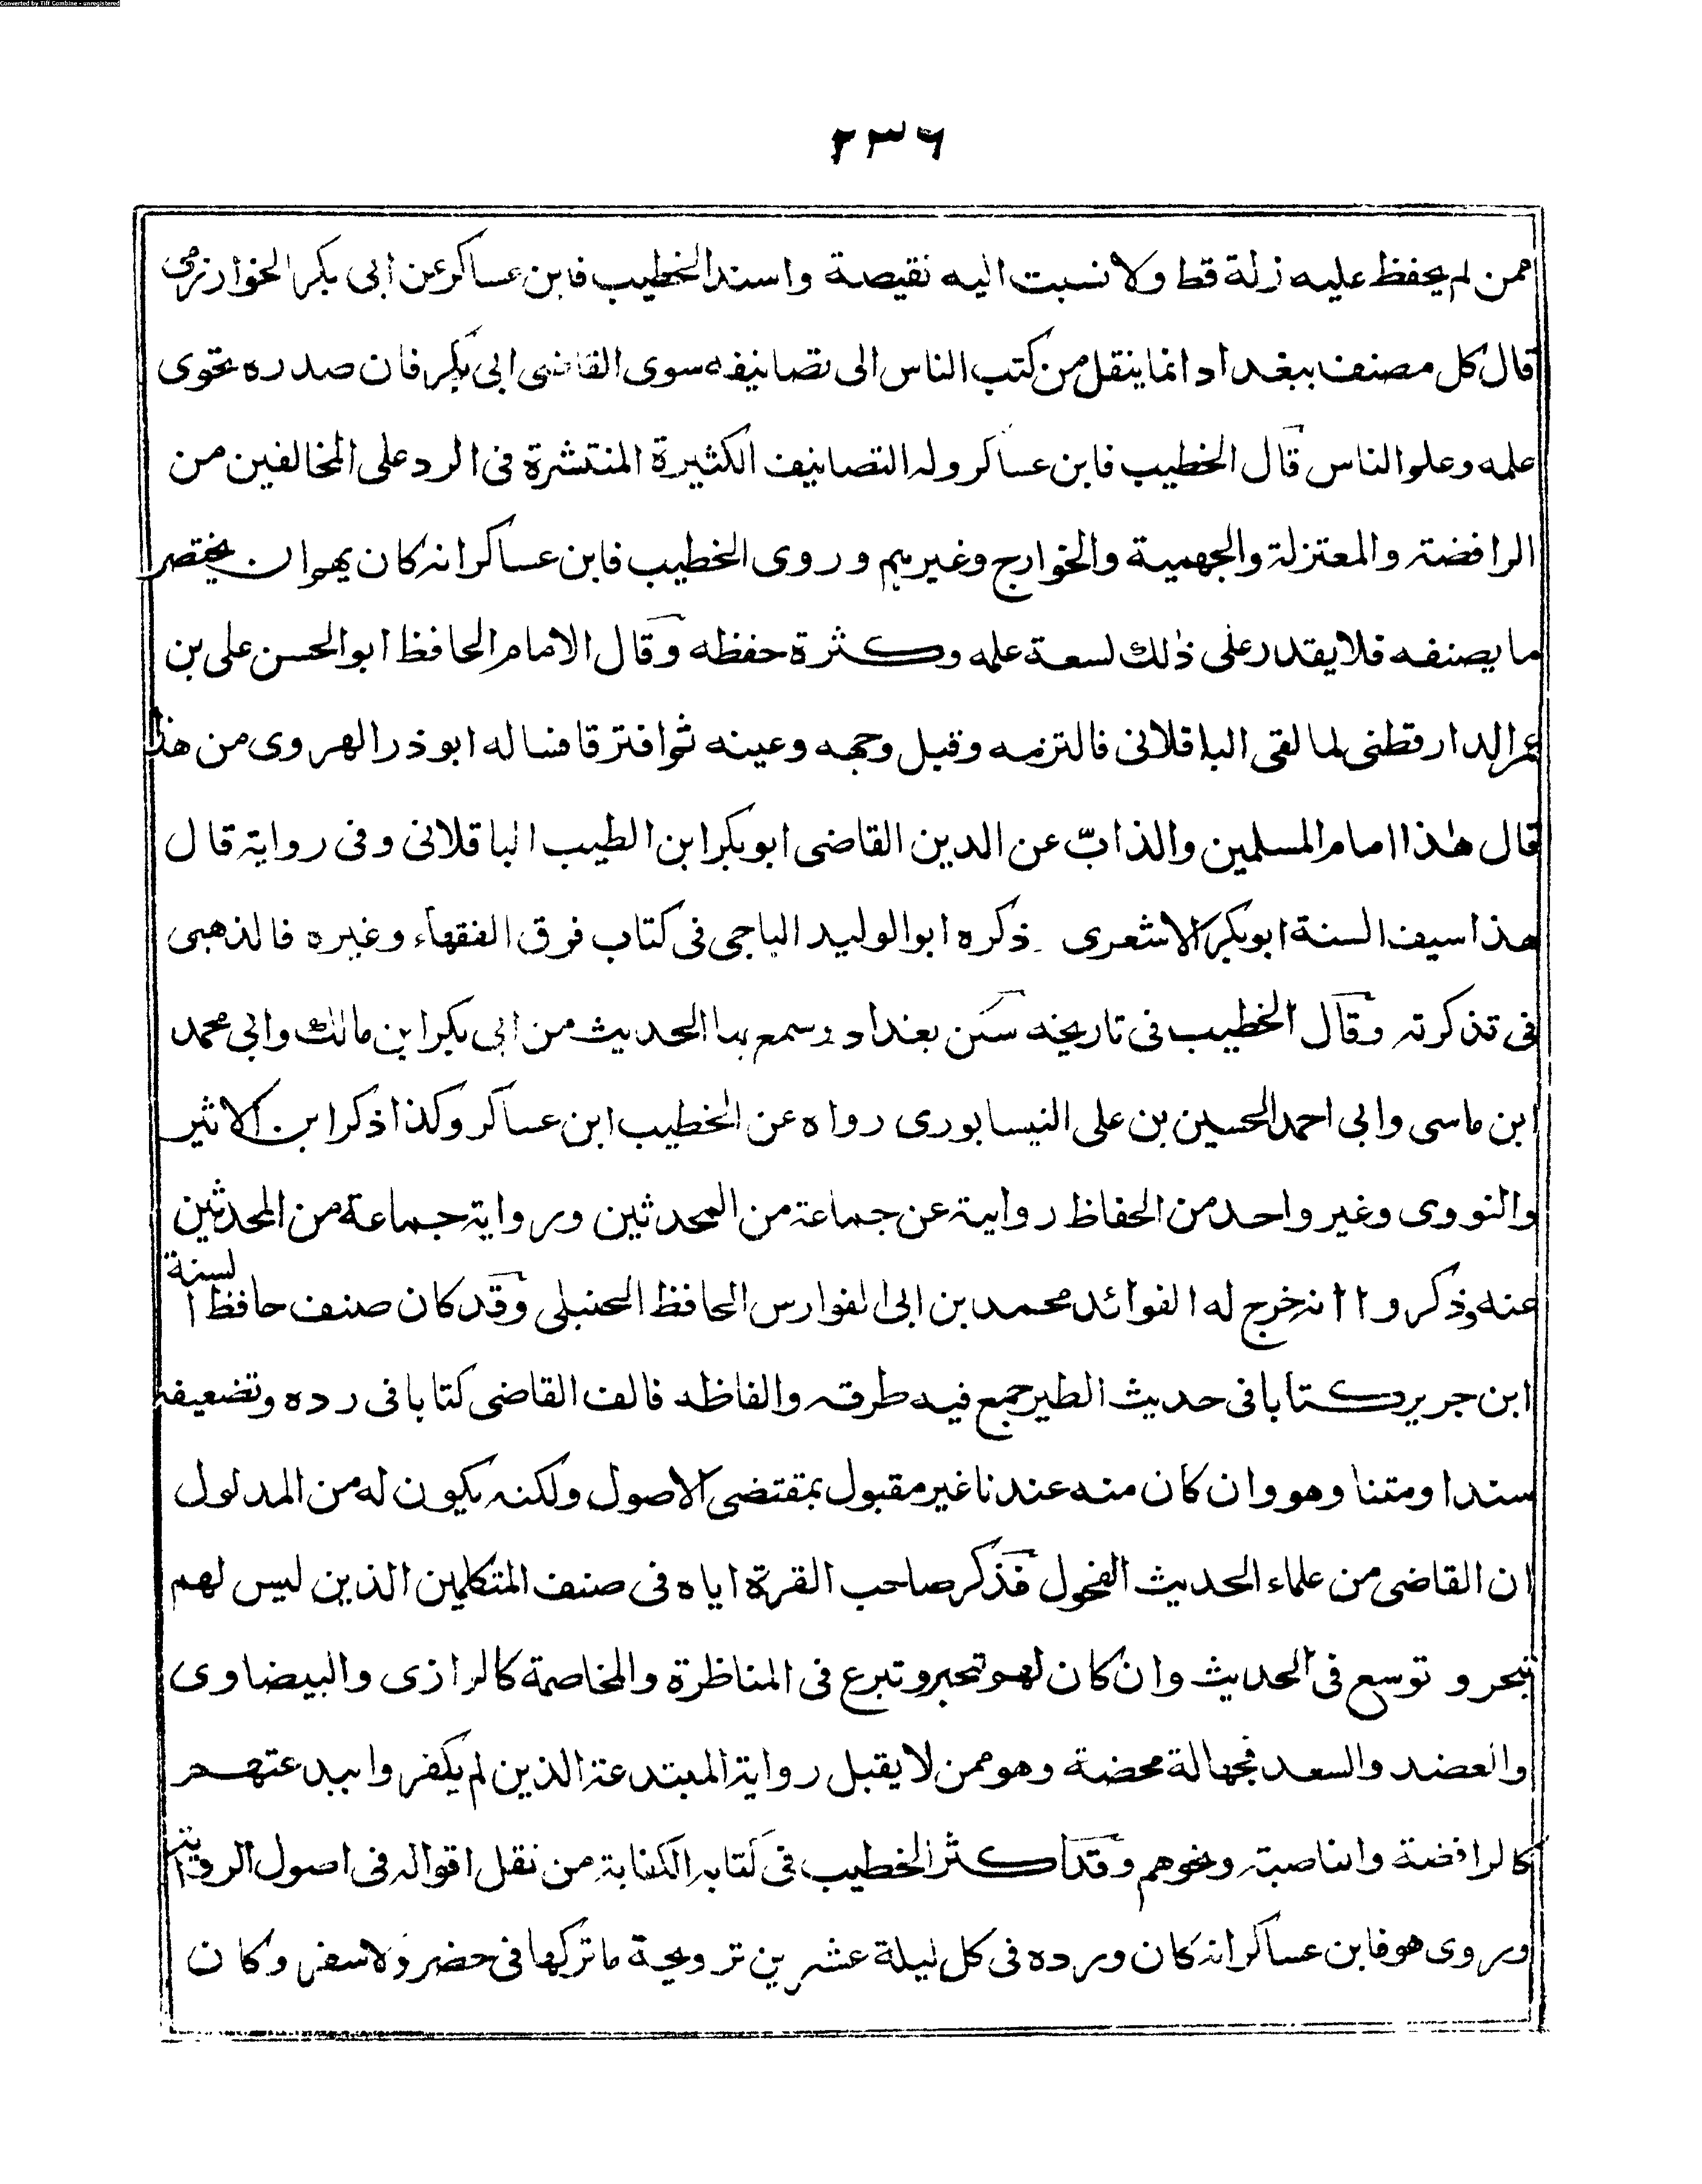 Converted by Tiff Combine - unregistered
٢٣٦
ممن لم يحفظ عليه زلة قط ولا نسبت اليه نقيصة واسند الخطيب فابن عساكر عن ابى بكر الخوارزمى
قال كل مصنف ببغداد انما ينقل من كتب الناس الى تصانيفه سوى القاضى ابى بكر فان صدره يحوى
علمه وعلم الناس قال الخطيب فابن عساكر وله التصانيف الكثيرة المنتشرة فى الرد على المخالفين من
الرافضة والمعتزلة والجهمية والخوارج وغيرهم وروى الخطيب فابن عساكر انه كان يهم ان يختصر
ما يصنفه فلا يقدر على ذلك لسعة علمه وكثرة حفظه وقال الامام الحافظ ابو الحسن على بن
عمر الدارقطنى لما لقى الباقلانى فالتزمه وقبل وجهه وعينه ثم افترقا فساله ابو ذر الهروى من هذا
قال هذا امام المسلمين والذابّ عن الدين القاضى ابو بكر ابن الطيب الباقلانى وفى رواية قال
هذا سيف السنة ابو بكر الاشعرى ذكره ابو الوليد الباجى فى كتاب فرق الفقهاء وغيره فالذهبى
فى تذكرته وقال الخطيب فى تاريخه سكن بغداد وسمع بها الحديث من ابى بكر ابن مالك وابى محمد
ابن ماسى وابى احمد الحسين بن على النيسابورى رواه عن الخطيب ابن عساكر وكذا ذكر ابن الاثير
والنووى وغير واحد من الحفاظ رواية عن جماعة من المحدثين ورواية جماعة من المحدثين
عنه وذكروا انه خرج له الفوائد محمد بن ابى الفوارس الحافظ الحنبلى وقد كان صنف حافظ السنة
ابن جرير كتابا فى حديث الطير جمع فيه طرقه والفاظه فالف القاضى كتابا فى رده وتضعيفه
سندا ومتنا وهو وان كان منه عندنا غير مقبول بمقتضى الاصول ولكنه يكون له من المدلول
ان القاضى من علماء الحديث الفحول فذكر صاحب القرة اياه فى صنف المتكلمين الذين ليس لهم
تبحر و توسع فى الحديث وان كان لهم تحبر وتبرع فى المناظرة والمخاصمة كالرازى والبيضاوى
والعضد والسعد فجهالة محضة وهو ممن لا يقبل رواية المبتدعة الذين لم يكفروا ببدعتهم
كالرافضة والناصبة ونحوهم وقد اكثر الخطيب فى كتابه الكفاية من نقل اقواله فى اصول الرواية
وروى هو فابن عساكر انه كان ورده فى كل ليلة عشرين ترويحة ما تركها فى حضر ولا سفر وكان